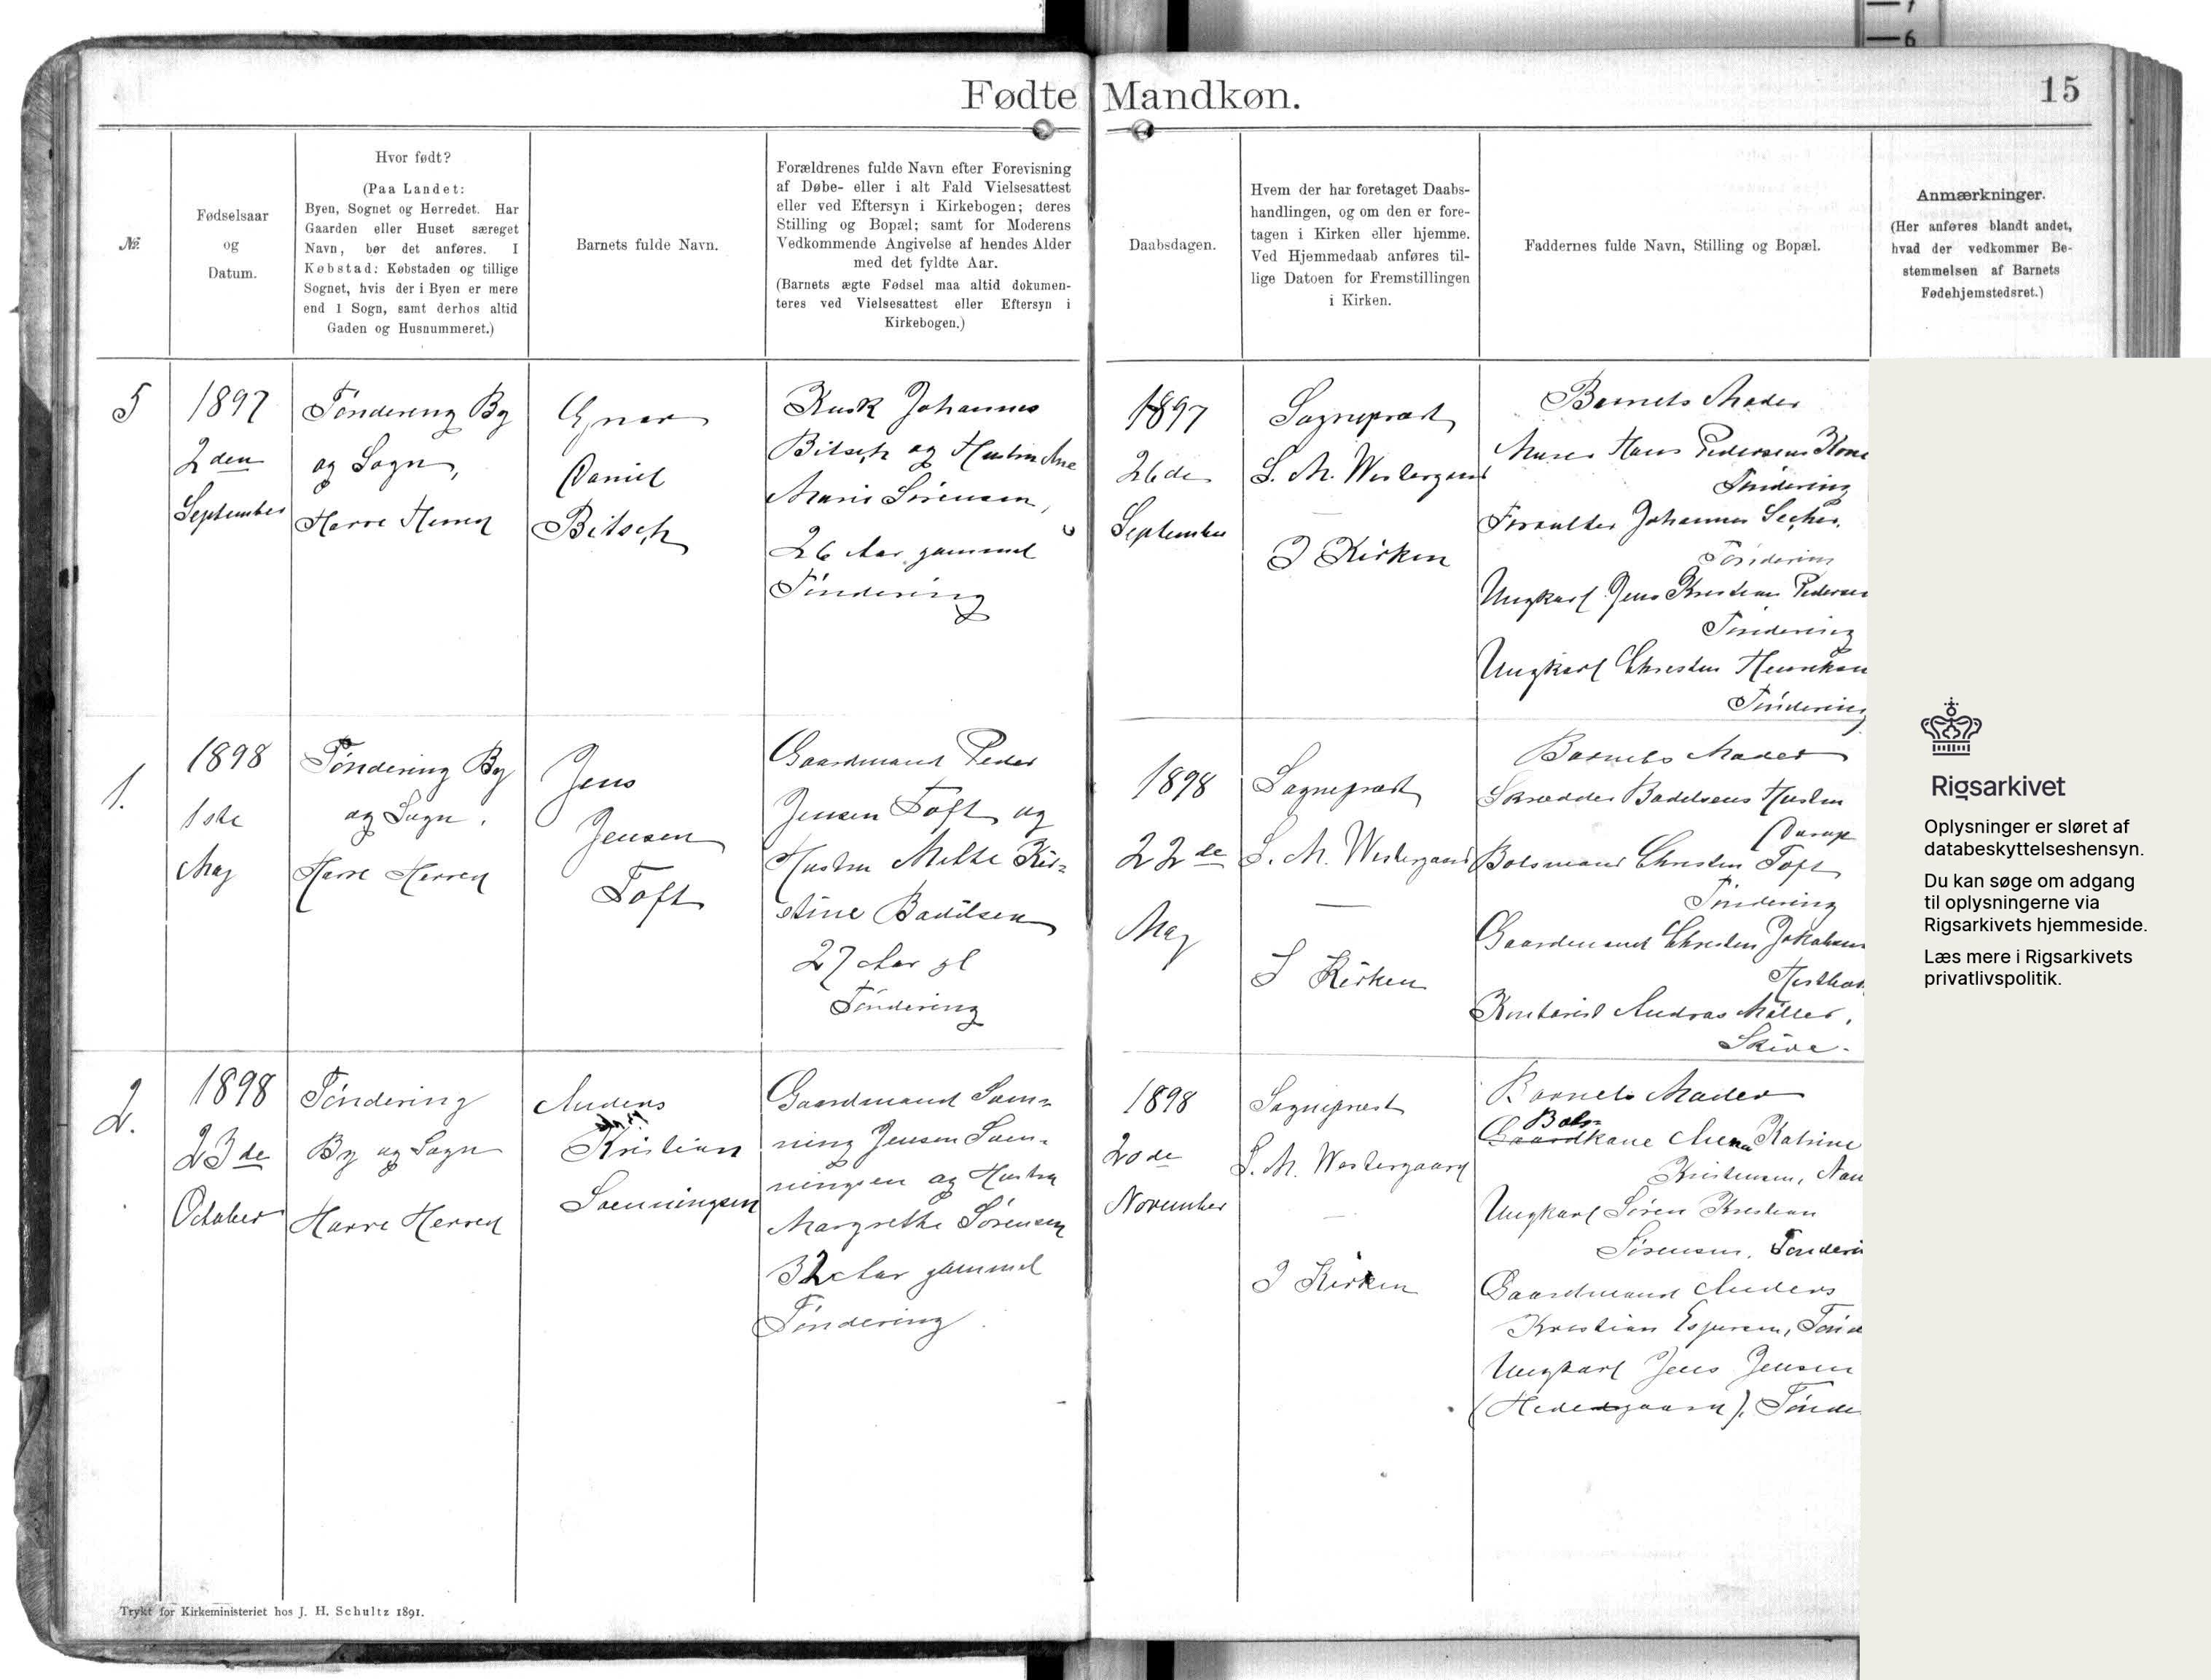 Fødte Mandkøn.
15
№
Fødselsaar
og
Datum.
Hvor født?
(Paa Landet:
Byen, Sognet og Herredet. Har
Gaarden eller Huset særeget
Navn, bør det anføres. I
Købstad: Købstaden og tillige
Sognet, hvis der i Byen er mere
end 1 Sogn, samt derhos altid
Gaden og Husnummeret.)
Barnets fulde Navn.
Forældrenes fulde Navn efter Forevisning
af Døbe- eller i alt Fald Vielsesattest
eller ved Eftersyn i Kirkebogen; deres
Stilling og Bopæl; samt for Moderens
Vedkommende Angivelse af hendes Alder
med det fyldte Aar.
(Barnets ægte Fødsel maa altid dokumen-
teres ved Vielsesattest eller Eftersyn i
Kirkebogen.)
Daabsdagen.
Hvem der har foretaget Daabs-
handlingen, og om den er fore-
tagen i Kirken eller hjemme.
Ved Hjemmedaab anføres til-
lige Datoen for Fremstillingen
i Kirken.
Faddernes fulde Navn, Stilling og Bopæl.
Anmærkninger.
(Her anføres blandt andet,
hvad der vedkommer Be-
stemmelsen af Barnets
Fødehjemstedsret.)
5
1897
2den
September
Tøndering By
og Sogn,
Harre Herred
Ejnar
Daniel
Bitsch
Kusk Johannes
Bitsch og Hustru Ane
Marie Sørensen,
26 Aar gammel
Tøndering
1897
26de
September
Sognepræst
S. M. Westergaard
I Kirken
Barnets Moder
Murer Hans Pedersens Kone
Tøndering
Forvalter Johannes Secher,
Tøndering
Ungkarl Jens Kristian Pedersen
Tøndering
Ungkarl Christen Henriksen
Tøndering
1.
1898
1ste
Maj
Tøndering By
og Sogn,
Harre Herred
Jens
Jensen
Toft
Gaardmand Peder
Jensen Toft og
Hustru Mette Kir=
stine Badilsen
27 Aar gl
Tøndering
1898
22de
Maj
Sognepræst
S. M. Westergaard
I Kirken
Barnets Moder
Skrædder Badilsens Hustru
Durup
Bolsmand Christen Toft
Tøndering
Gaardmand Christen Jakobsen
Kontorist Andreas Møller,
Skive.
2.
1898
23de
October
Tøndering
By og Sogn
Harre Herred
Anders
Kristian
Svenningsen
Gaardmand Sven=
ning Jensen Sven=
ningsen og Hustru
Margrethe Sørensen
32 Aar gammel
Tøndering
1898
20de
November
Sognepræst
S. M. Westergaard
I Kirken
Barnets Moder
Bols
Gaardkone Ane Katrine
Kristensen,
Ungkarl Søren Kristian
Sørensen, Tønderi
Gaardmand Anders
Kristian Espersen, Tønd
Ungkarl Jens Jensen
(Hedegaard), Tønde
Trykt for Kirkeministeriet hos J. H. Schultz 1891.
7
6
Rigsarkivet
Oplysninger er sløret af
databeskyttelseshensyn.
Du kan søge om adgang
til oplysningerne via
Rigsarkivets hjemmeside.
Læs mere i Rigsarkivets
privatlivspolitik.